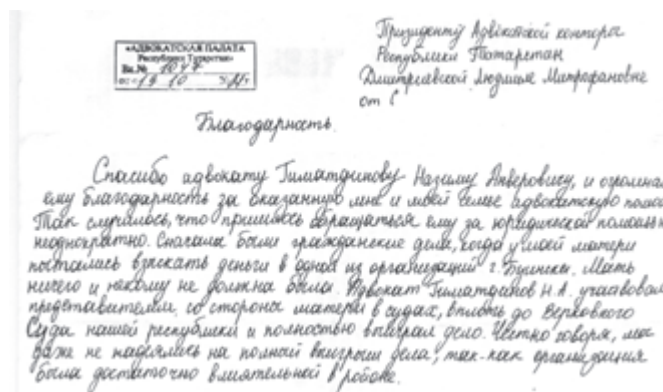 «АДВОКАТСКАЯ ПАЛАТА
Республики Татарстан»
Вх.№ 1047
от «19 10
Президенту Адвокатской конторы
Республики Татарстан
Дмитриевской Людмиле Митрофановне
от С
Благодарность.
Спасибо адвокату Гиматдинову Назиму Анверовичу, и огромная
ему благодарность за оказанную мне и моей семье адвокатскую помощ
Так случилось, что пришлось обращаться ему за юридической помощью
неоднократно. Сначала были гражданские дела, когда у моей матери
пытались взыскать деньги в одной из организаций г. Буинска. Мать
ничего и никому не должна была. Адвокат Гиматдинов Н.А. участвовал
представителем со стороны матери в судах, вплоть до Верховного
Суда нашей республики и полностью выиграл дело. Честно говоря, мы
даже не надеялись на полный выигрыш дела, так как организация
была достаточно влиятельной в районе.